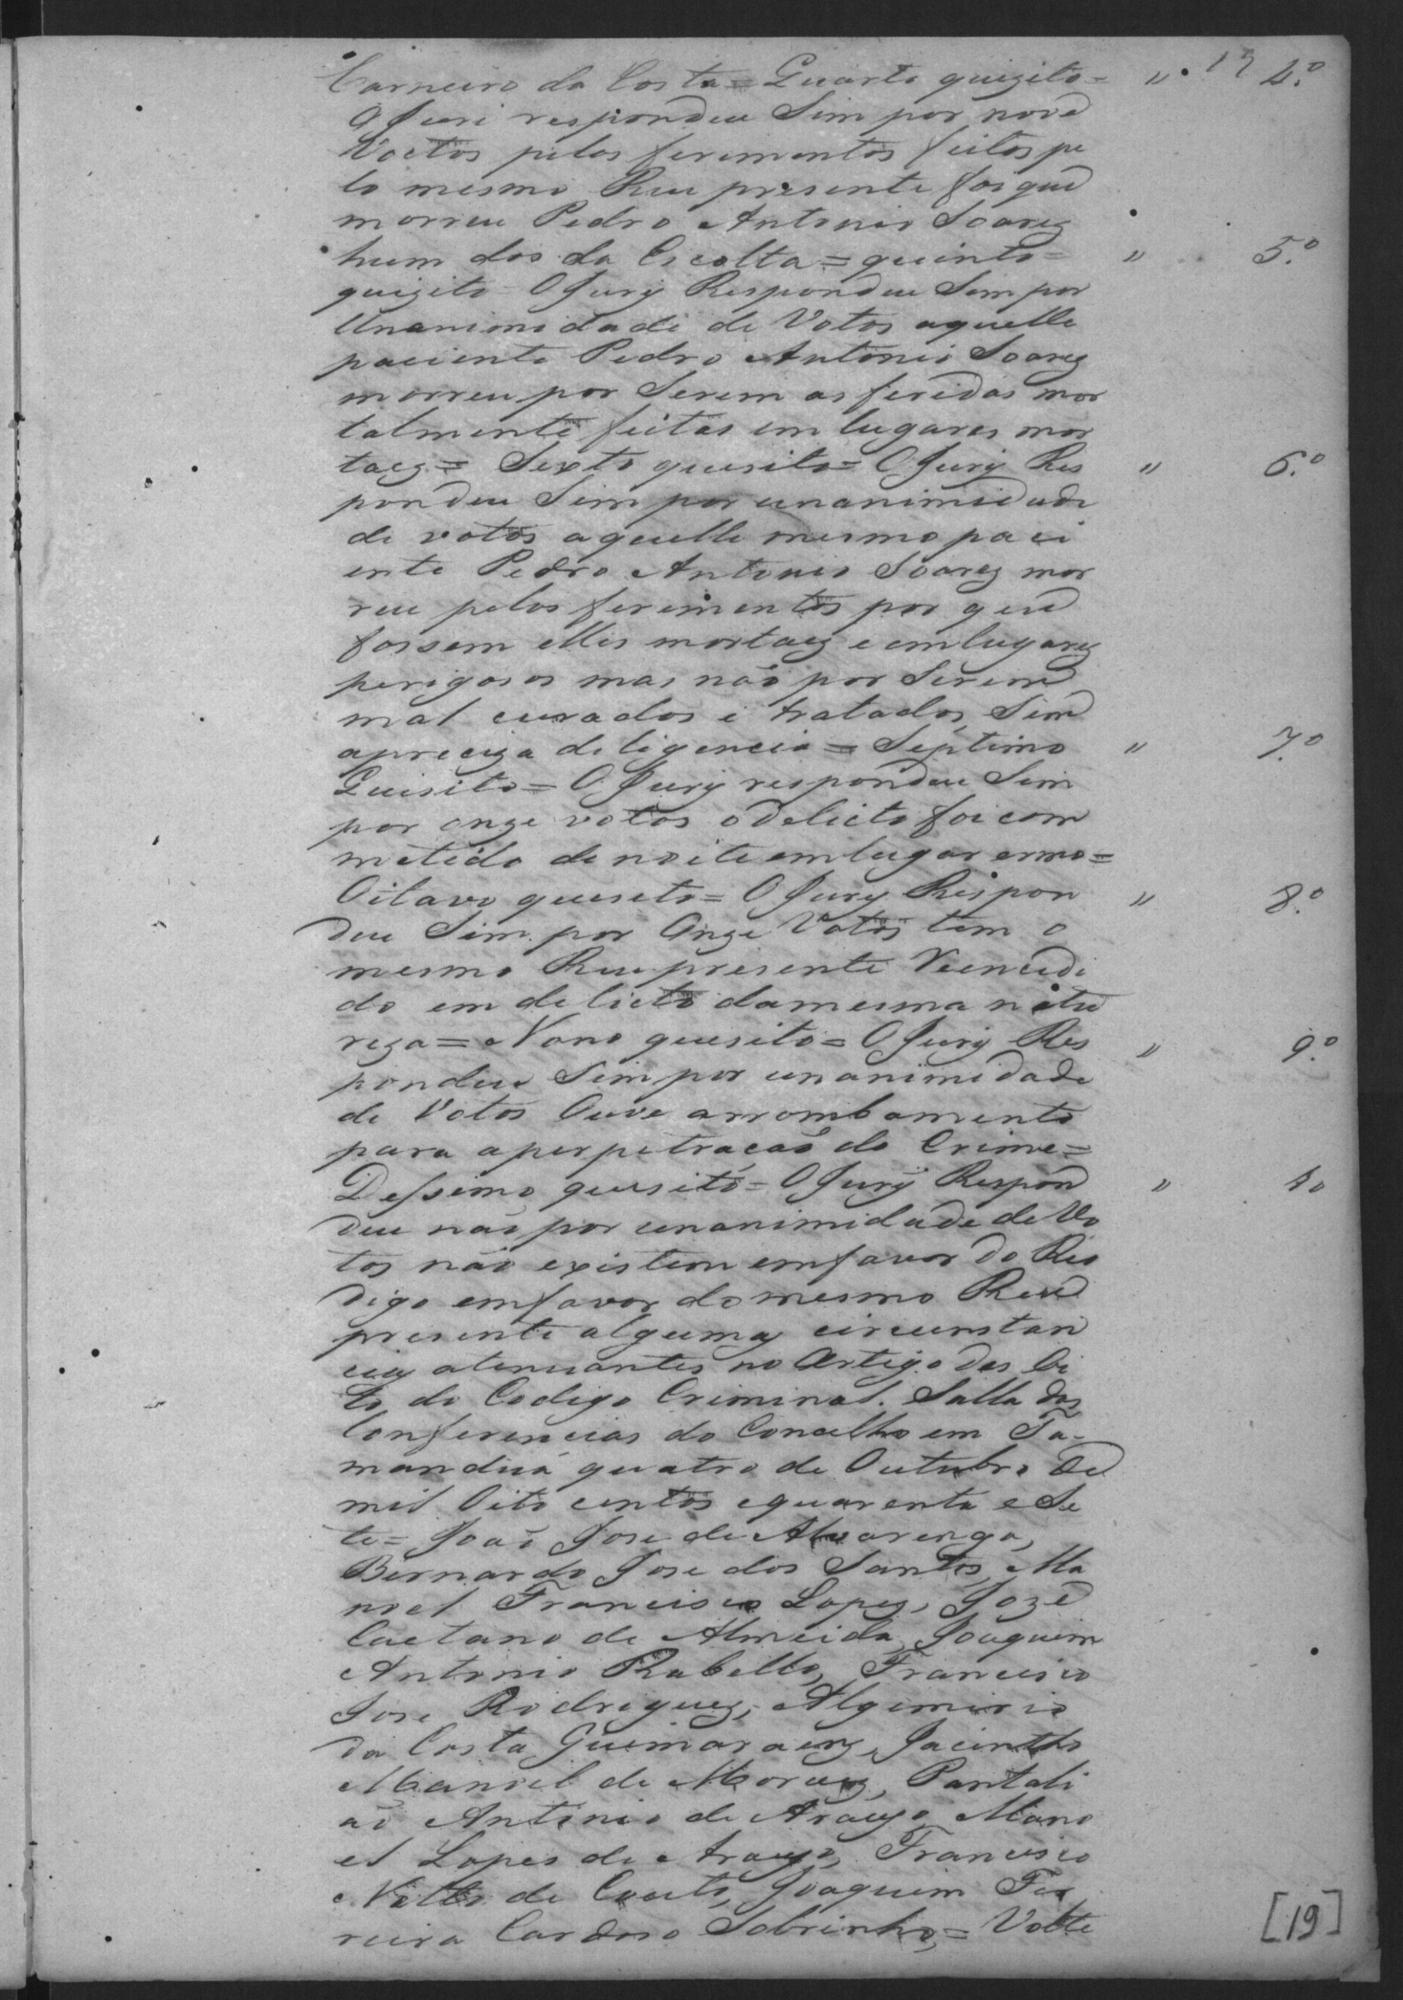 Carneiro da Costa = Quarto quizito = " 19 4.º
O Juri respondeu Sim por nove
Voctos pelos ferimentos feitos pe
lo mesmo Reu presente foi que
morreu Pedro Antonio Soarez
hum dos da Escolta = quinto = " 5.º
quizito = O Jury Respondeu Sim por
Unanimidade de Votos aquelle
paciente Pedro Antonio Soarez
morreu por Serem as feridas mor
talmente feitas em lugares mor
taez = Sexto quesito = O Jury Res " 6.º
pondeu Sim por unanimidade
de votos aquelle mesmo paci
ente Pedro Antonio Soarez mor
reu pelos ferimentos por que
fossem elles mortaez e em lugarez
perigosos mas não por Serem
mal curados e tratados, Sem
apreciza deligencia = Septimo " 7.º
Quisito = O Jury respondeu Sim
por onze votos o delicto foi com
metido de noite em lugar ermo =
Oitavo quesito = O Jury Respon " 8.º
deu Sim por Onze Votos tem o
mesmo Reu presente Reencidi
do em delicto da mesma natu
reza = Nono quesito = O Jury Res " 9.º
pondeu Sim por unanimidade
de Votos Ouve arrombamento
para a perpetracão do Crime =
Dessimo quesito = O Jury Respon " 10
deu não por unanimidade de Vo
tos não existem em favor do Reo
digo em favor do mesmo Reu
presente alguma circunstan
cia atenuantes no Artigo des Oi
to do Codigo Criminal. Salla das
Conferencias do Concelho em Ta-
manduá quatro de Outubro de
mil Oito centos e quarenta e Se
te = João Jose de Alvarenga,
Bernardo Jose dos Santos, Ma
noel Francisco Lopes, Joze
Caetano de Almeida, Joaquim
Antonio Rabello, Francisco
Jose Rodriguez, Algemirio
da Costa Guimaraens, Jacintho
Manoel de Moraez, Pantali
ão Antonio de Araujo, Mano
el Lopes de Araujo, Francisco
Netto de Couto, Joaquim Fer
reira Cardoso Sobrinho, = Volte
[19]